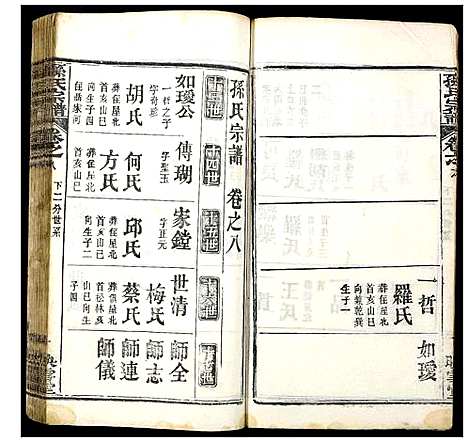 孫氏宗譜
一哲
羅氏
葬
首亥山巳
向
生子一
如璦
孫氏宗譜 卷之八
十三世
十四世
十五世
十六世
十七世
如璦公
一哲之子
字奇珍
胡氏
葬住屋北
首亥山巳
向生子四
傳瑚
字聖玉
何氏
葬住屋北
首亥山巳
方氏
葬住屋北
首亥山巳
向生子一
家鏜
字正元
邱氏
葬住屋北
首亥山巳
向生子二
世清
梅氏
蔡氏
葬住屋北
首松林亥
山巳向生
子四
師全
師志
師連
師儀
孫氏宗譜
卷之八
下二分世系
映雪堂